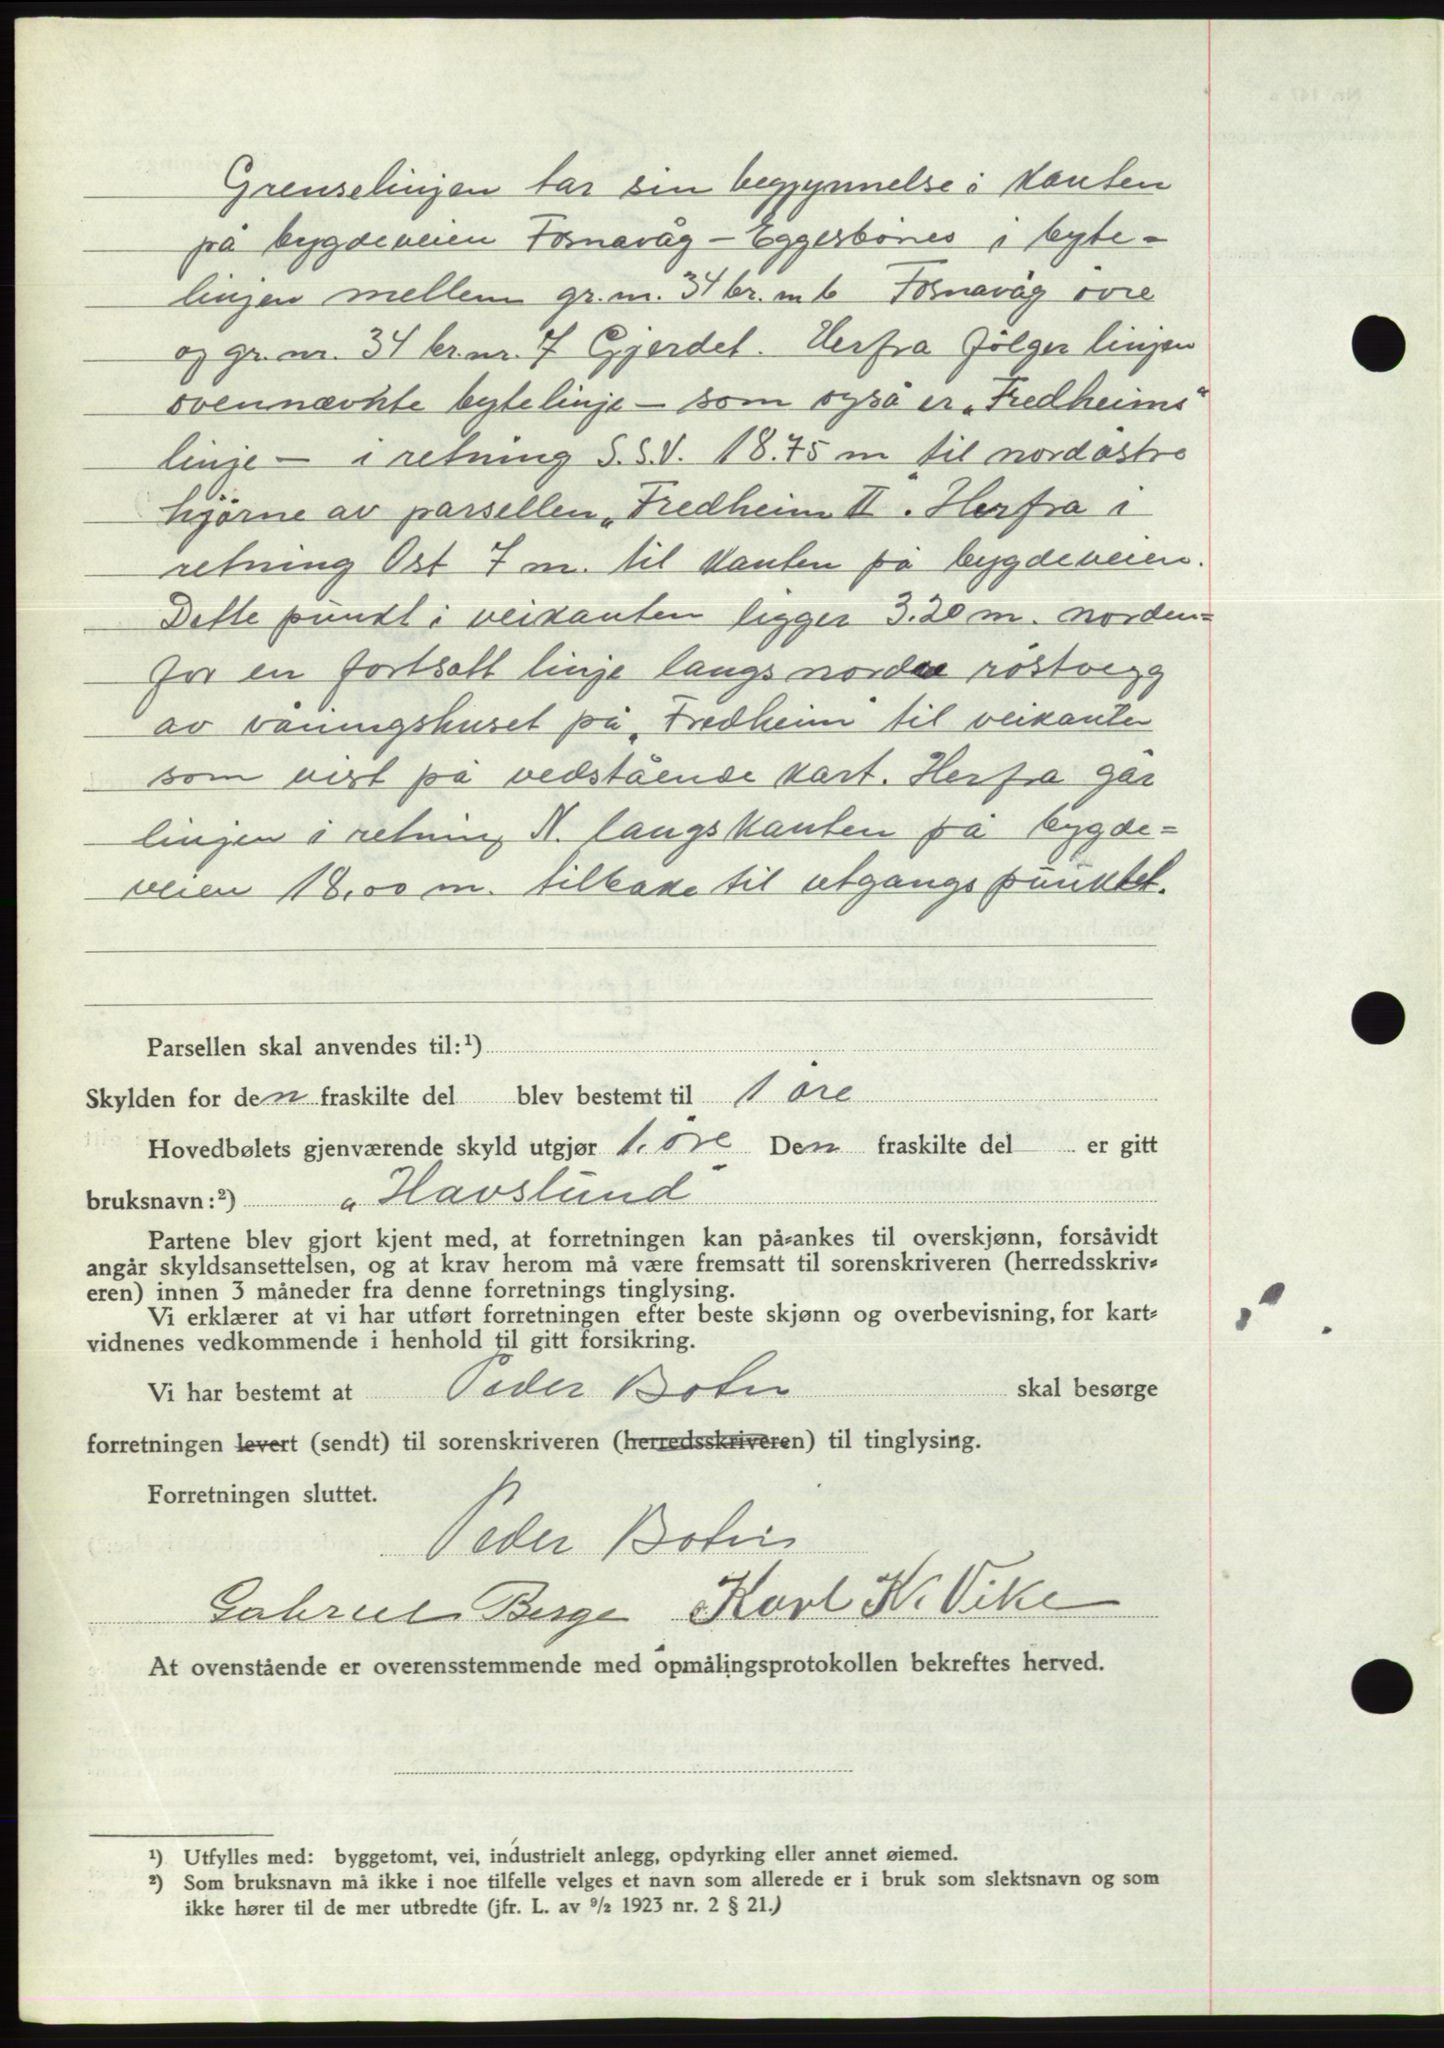 Grenselinjen tar sin begynnelse i kanten
på bygdeveien Fosnavåg – Eggesbønes i byte-
linjen mellem gr.nr. 34 br.nr 6 Fosnavåg øvre
og gr.nr. 34 br.nr. 7 Gjerdet. Herfra følger linjen
ovennævnte bytelinje – som også er „Fredheims"
linje – i retning S.S.V. 18.75 m til nordøstre
hjørne av parsellen „Fredheim II". Herfra i
retning Øst 7 m. til kanten på bygdeveien.
Dette punkt i veikanten ligger 3.20 m. norden-
for en fortsatt linje langs nordre røstvegg
av våningshuset på „Fredheim" til veikanten
som vist på vedstående kart. Herfra går
linjen i retning N. langs kanten på bygde-
veien 18,00 m. tilbake til utgangspunktet.
Parsellen skal anvendes til:¹)
Skylden for den fraskilte del blev bestemt til 1 øre
Hovedbølets gjenværende skyld utgjør 1. øre Den fraskilte del er gitt
bruksnavn:²) „Havslund"
Partene blev gjort kjent med, at forretningen kan på-ankes til overskjønn, forsåvidt
angår skyldsansettelsen, og at krav herom må være fremsatt til sorenskriveren (herredsskriv-
eren) innen 3 måneder fra denne forretnings tinglysing.
Vi erklærer at vi har utført forretningen efter beste skjønn og overbevisning, for kart-
vidnenes vedkommende i henhold til gitt forsikring.
Vi har bestemt at Peder Botn skal besørge
forretningen levert (sendt) til sorenskriveren (herredsskriveren) til tinglysing.
Forretningen sluttet.
Peder Botn
Gabriel Berge Karl K. Vike
At ovenstående er overensstemmende med opmålingsprotokollen bekreftes herved.
¹) Utfylles med: byggetomt, vei, industrielt anlegg, opdyrking eller annet øiemed.
²) Som bruksnavn må ikke i noe tilfelle velges et navn som allerede er i bruk som slektsnavn og som
ikke hører til de mer utbredte (jfr. L. av ⁹/₂ 1923 nr. 2 § 21.)